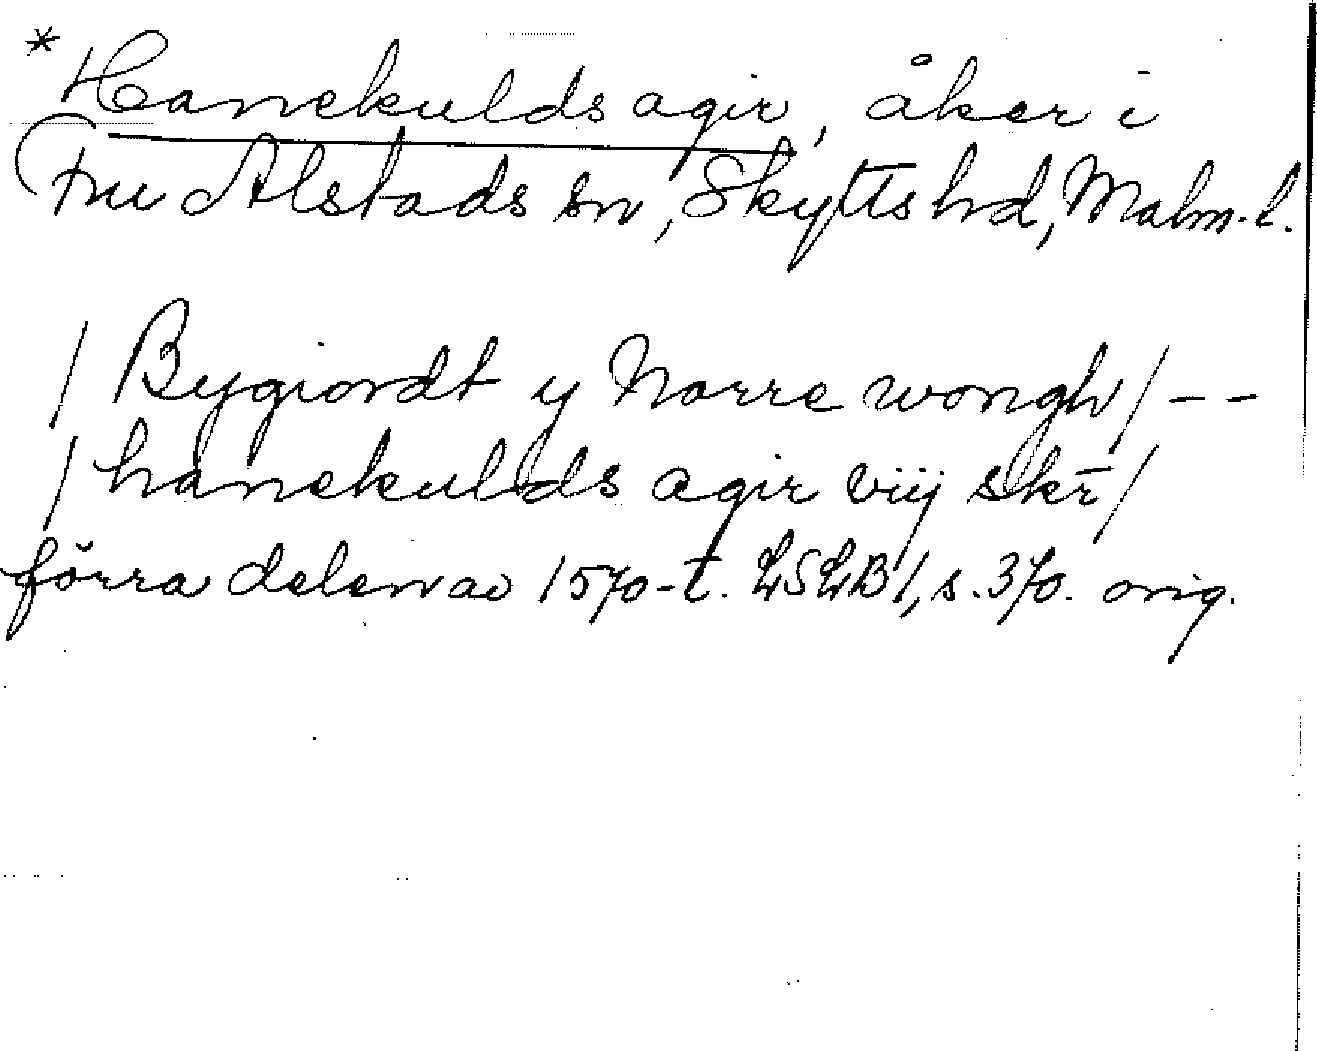 * Hanekulds agir, åker i
Fru Alstads sn, Skytts hd, Malm. l.
/ Bygiordt y Norre wongh / - -
/ hanekulds agir viij skr̄ /
förra delen av 1570-t. LSLB 1, s. 370. orig.